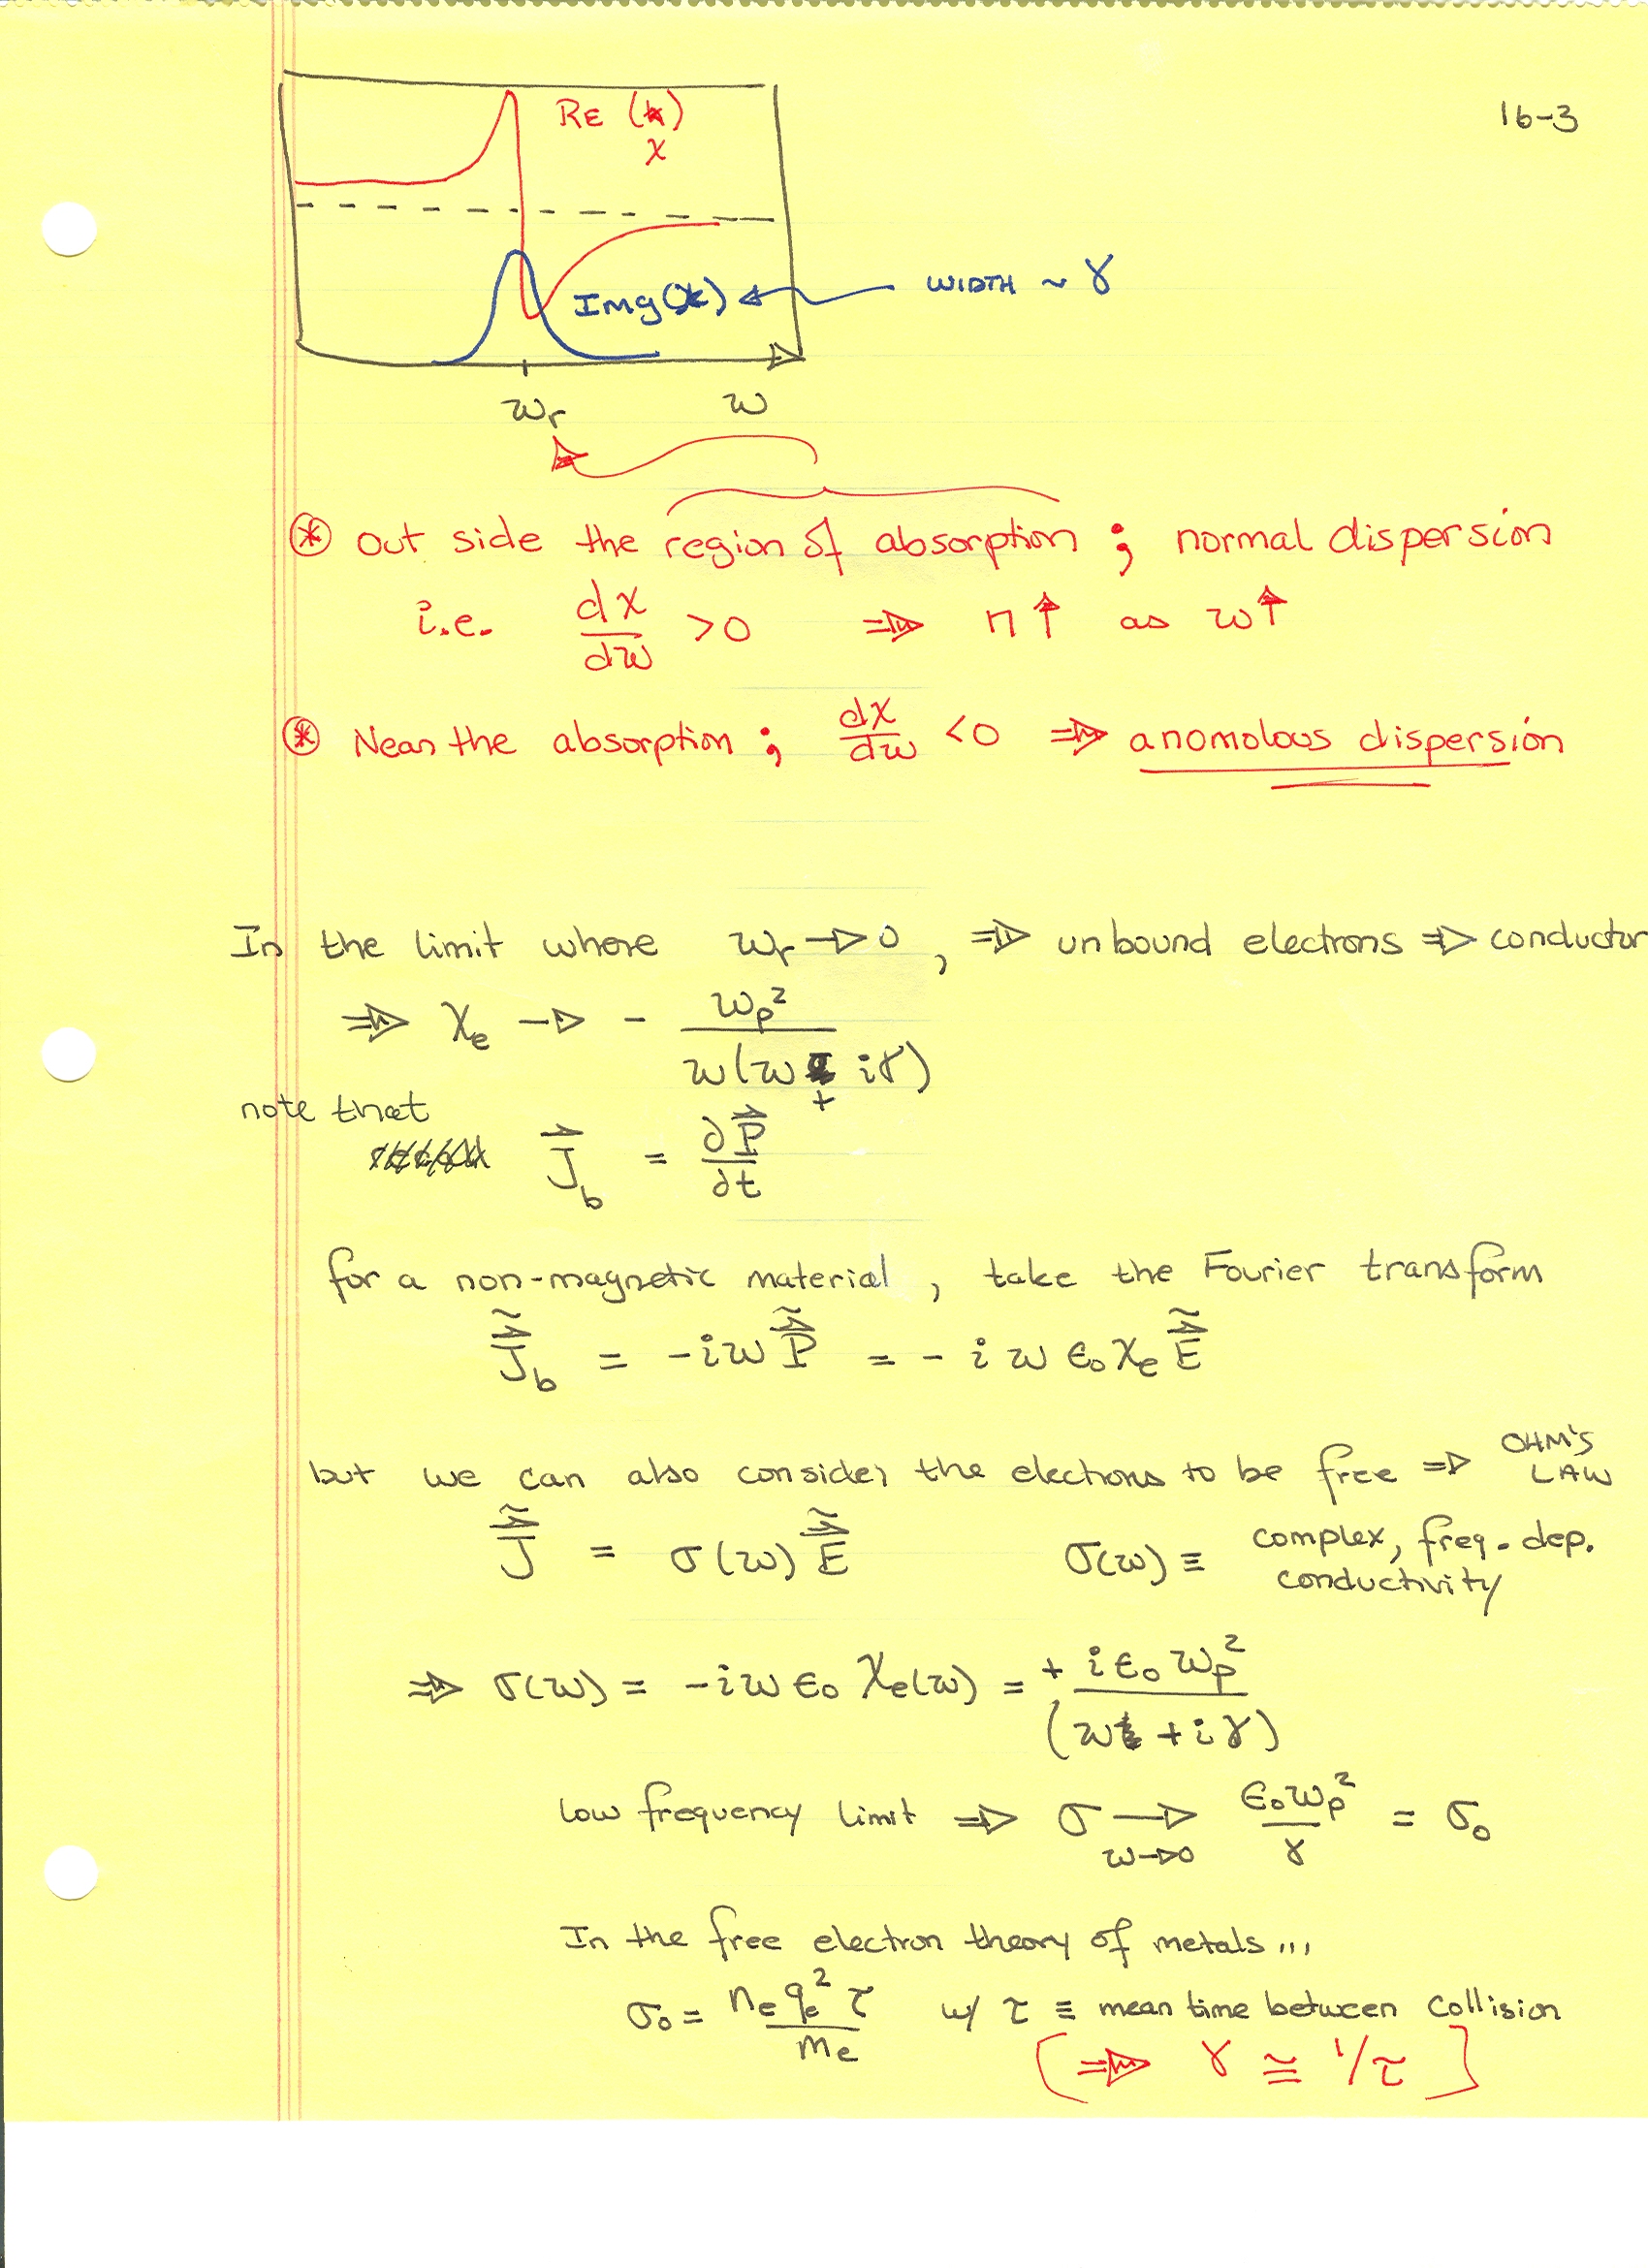 16-3
RE (k)
χ
Img(χ) ← WIDTH ~ γ
ωr ω
⊛ out side the region of absorption ; normal dispersion
i.e. dχ/dω >0 ⇒ n↑ as ω↑
⊛ Near the absorption ; dχ/dω <0 ⇒ anomolous dispersion
In the limit where ωr → 0 , ⇒ unbound electrons ⇒ conductor
⇒ χe → - ωp²/ω(ω + iγ)
note that
J⃗b = ∂P⃗/∂t
for a non-magnetic material , take the Fourier transform
J̃⃗b = -iω P̃⃗ = - i ω ϵ₀ χe Ẽ⃗
but we can also consider the electrons to be free ⇒ OHM'S LAW
J̃⃗ = σ(ω) Ẽ⃗ σ(ω) ≡ complex, freq. dep. conductivity
⇒ σ(ω) = -iω ϵ₀ χe(ω) = + iϵ₀ ωp²/(ω + iγ)
low frequency limit ⇒ σ →ω→0 ϵ₀ωp²/γ = σ₀
In the free electron theory of metals...
σ₀ = ne qe² τ/me w/ τ ≡ mean time between collision
[⇒ γ ≅ 1/τ]